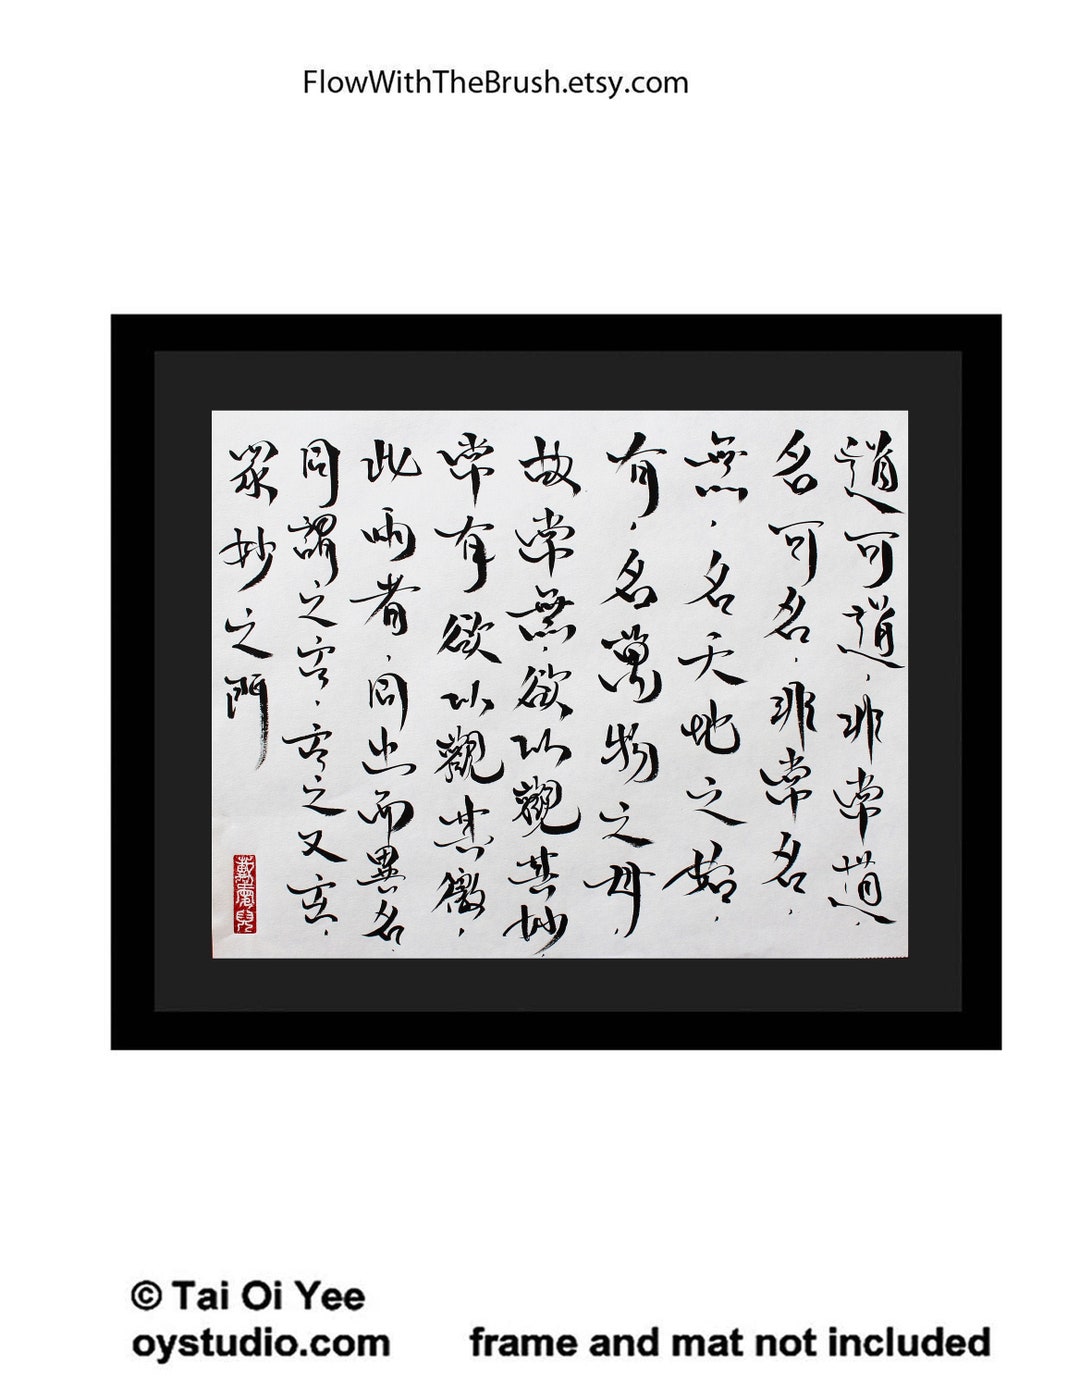 FlowWithTheBrush.etsy.com
道可道，非常道，
名可名，非常名，
無，名天地之始，
有，名萬物之母，
故常無，欲以觀其妙，
常有欲以觀其徼，
此兩者，同出而異名，
同謂之玄，玄之又玄，
眾妙之門
© Tai Oi Yee
oystudio.com frame and mat not included